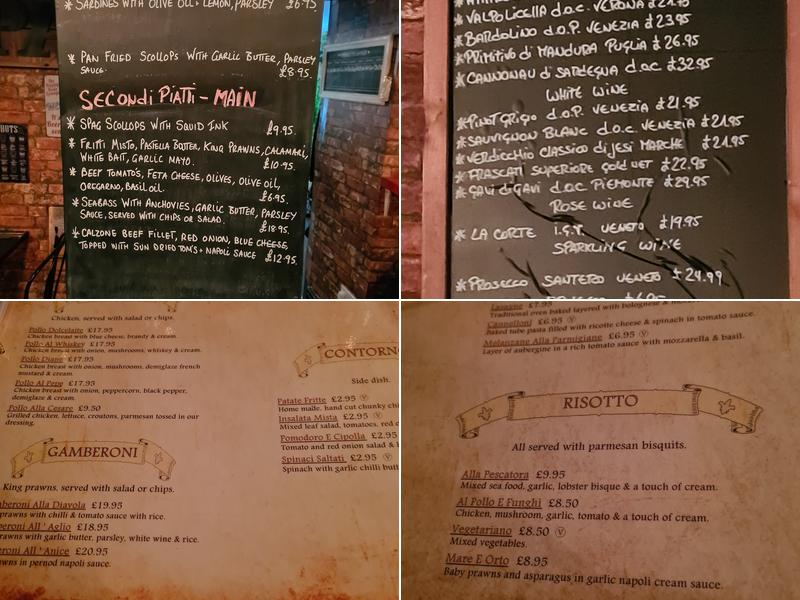 SARDINES WITH OLIVE OIL + LEMON, PARSLEY £6.95
* PAN FRIED SCOLLOPS WITH GARLIC BUTTER, PARSLEY
SAUCE. £8.95.
SECONDI PIATTI - MAIN
* SPAG SCOLLOPS WITH SQUID INK £9.95.
* FRITTI MISTO, PASTELLA BATTER, KING PRAWNS, CALAMARI,
WHITE BAIT, GARLIC MAYO. £10.95
* BEEF TOMATO'S, FETA CHEESE, OLIVES, OLIVE OIL,
OREGARNO, BASIL OIL. £6.95.
* SEABASS WITH ANCHOVIES, GARLIC BUTTER, PARSLEY
SAUCE, SERVED WITH CHIPS OR SALAD. £18.95.
* CALZONE BEEF FILLET, RED ONION, BLUE CHEESE,
TOPPED WITH SUN DRIED TOM'S + NAPOLI SAUCE £12.95.
* VALPOLICELLA d.o.c. VERONA
* BARDOLINO d.o.P. VENEZIA £23.95
* PRIMITIVO di MANDURA PUGLIA £26.95
* CANNONAU di SARDEGNA d.o.c £32.95
WHITE WINE
* PINOT GRIGO d.o.P. VENEZIA £21.95
* SAUVIGNON BLANC d.o.c. VENEZIA £21.95
* VERDICCHIO CLASSICO di JESI MARCHE £21.95
* FRASCATI SUPERIORE Gold VET £22.95
* GAVI di GAVI d.o.c PIEMONTE £29.95
ROSE WINE
* LA CORTE I.G.T. VENETO £19.95
SPARKLING WINE
* PROSECCO SANTERO VENETO £24.99
Chicken, served with salad or chips.
Pollo Dolcelaite £17.95
Chicken breast with blue cheese, brandy & cream.
Pollo Al Whiskey £17.95
Chicken breast with onion, mushrooms, whiskey & cream.
Pollo Diane £17.95
Chicken breast with onion, mushrooms, demiglaze french
mustard & cream.
Pollo Al Pepe £17.95
Chicken breast with onion, peppercorn, black pepper,
demiglaze & cream.
Pollo Alla Cesare £9.50
Grilled chicken, lettuce, croutons, parmesan tossed in our
dressing.
GAMBERONI
King prawns, served with salad or chips.
beroni Alla Diavola £19.95
prawns with chilli & tomato sauce with rice.
eroni All 'Aglio £18.95
rawns with garlic butter, parsley, white wine & rice.
eroni All 'Anice £20.95
wns in pernod napoli sauce.
CONTORN
Side dish.
Patate Fritte £2.95 V
Home maile, hand cut chunky ch
Insalata Mista £2.95 V
Mixed leaf salad, tomatoes, red o
Pomodoro E Cipolla £2.95
Tomato and red onion salad &
Spinaci Saltati £2.95 V
Spinach with garlic chilli butt
Lasagne £7.95
Traditional oven baked layered with bolognese &
Cannelloni £6.95 V
Baked tube pasta filled with ricotte cheese & spinach in tomato sauce.
Melanzane Alla Parmigiane £6.95 V
Layer of aubergine in a rich tomato sauce with mozzarella & basil.
RISOTTO
All served with parmesan bisquits.
Alla Pescatora £9.95
Mixed sea food, garlic, lobster bisque & a touch of cream.
Al Pollo E Funghi £8.50
Chicken, mushroom, garlic, tomato & a touch of cream.
Vegetariano £8.50 V
Mixed vegetables.
Mare E Orto £8.95
Baby prawns and asparagus in garlic napoli cream sauce.